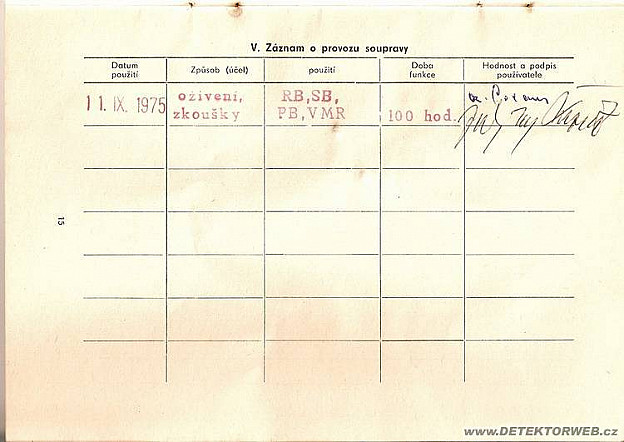 V. Záznam o provozu soupravy
Datum použití
Způsob (účel)
použití
Doba funkce
Hodnost a podpis používatele
11. IX. 1975
oživení, zkoušky
RB,SB, PB,VMR
100 hod.
15
www.DETEKTORWEB.cz